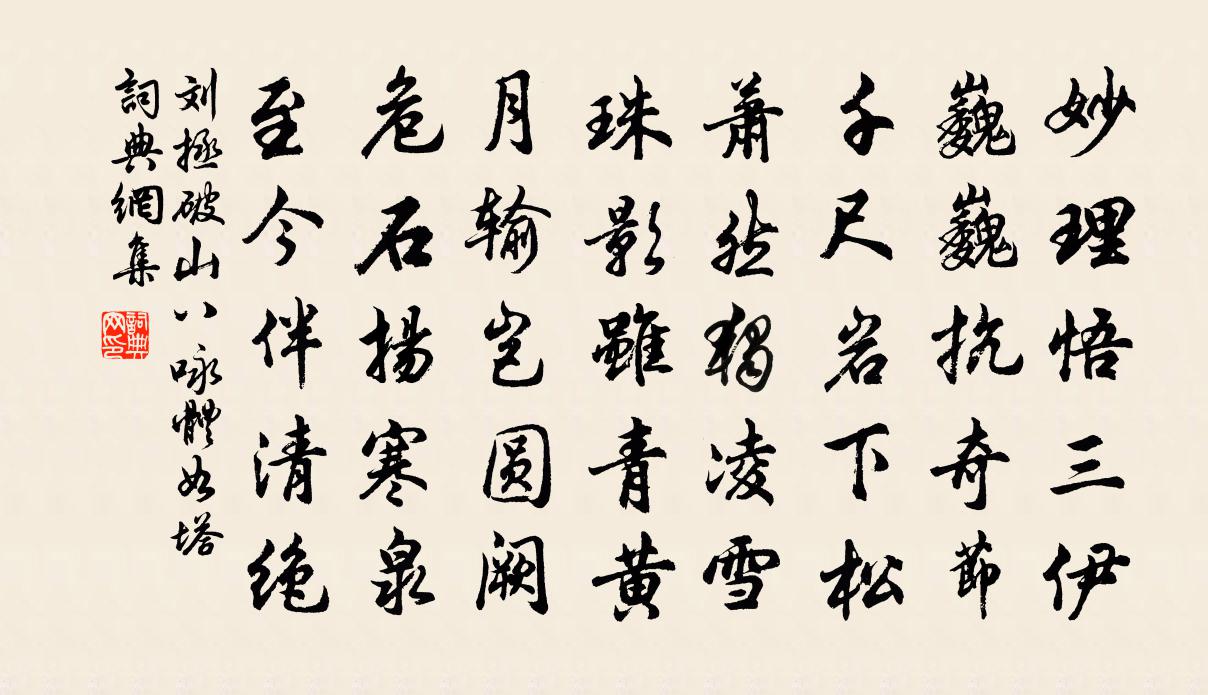 妙理悟三伊
巍巍抗奇節
千尺岩下松
蕭然獨凌雪
珠影雖青黃
月輪豈圓闕
危石揚寒泉
至今伴清絶
刘拯破山八咏體如塔
詞典網集
詞典
网印